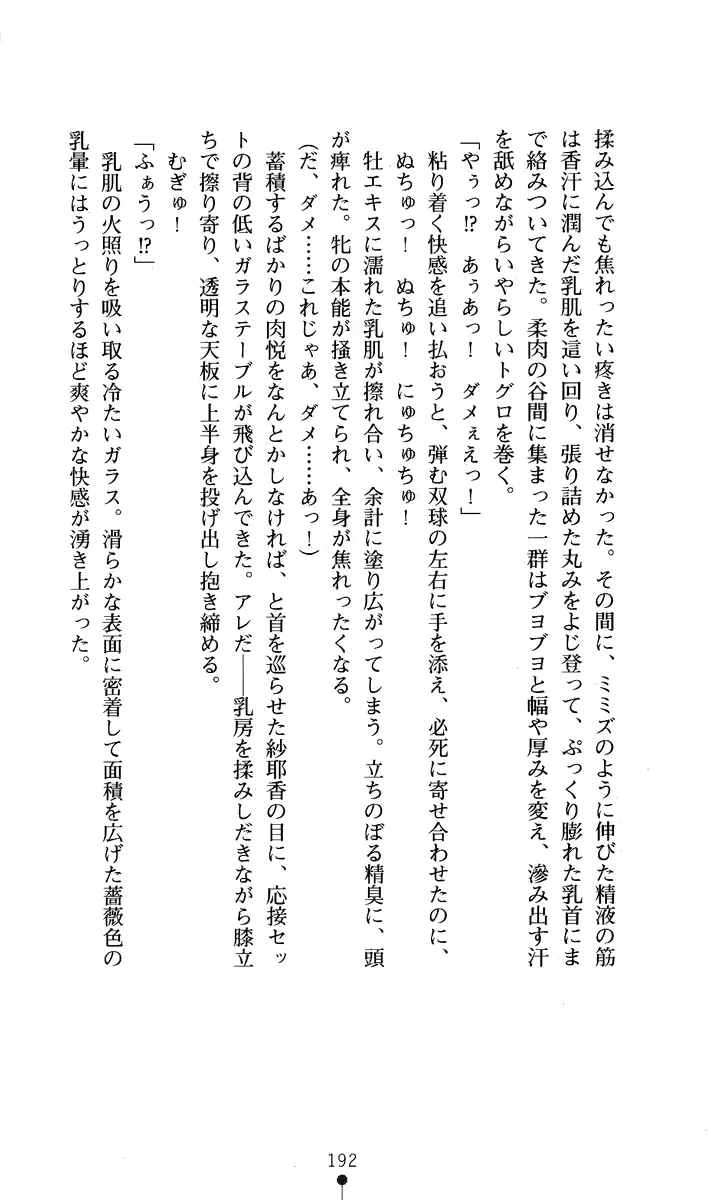 揉み込んでも焦れったい疼きは消せなかった。その間に、ミミズのように伸びた精液の筋
は香汗に潤んだ乳肌を這い回り、張り詰めた丸みをよじ登って、ぷっくり膨れた乳首にま
で絡みついてきた。柔肉の谷間に集まった一群はブヨブヨと幅や厚みを変え、滲み出す汗
を舐めながらいやらしいトグロを巻く。
「やぅっ!? あぅあっ! ダメぇえっ!」
粘り着く快感を追い払おうと、弾む双球の左右に手を添え、必死に寄せ合わせたのに、
ぬちゅっ! ぬちゅ! にゅちゅちゅ!
牡エキスに濡れた乳肌が擦れ合い、余計に塗り広がってしまう。立ちのぼる精臭に、頭
が痺れた。牝の本能が掻き立てられ、全身が焦れったくなる。
(だ、ダメ……これじゃあ、ダメ……あっ!)
蓄積するばかりの肉悦をなんとかしなければ、と首を巡らせた紗耶香の目に、応接セッ
トの背の低いガラステーブルが飛び込んできた。アレだ――乳房を揉みしだきながら膝立
ちで擦り寄り、透明な天板に上半身を投げ出し抱き締める。
むぎゅ!
「ふぁうっ!?」
乳肌の火照りを吸い取る冷たいガラス。滑らかな表面に密着して面積を広げた薔薇色の
乳暈にはうっとりするほど爽やかな快感が湧き上がった。
192